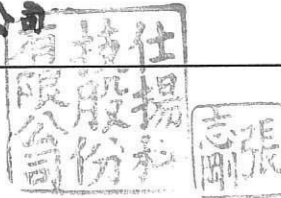 司
仕揚科
技股份
有限公司
張
志剛